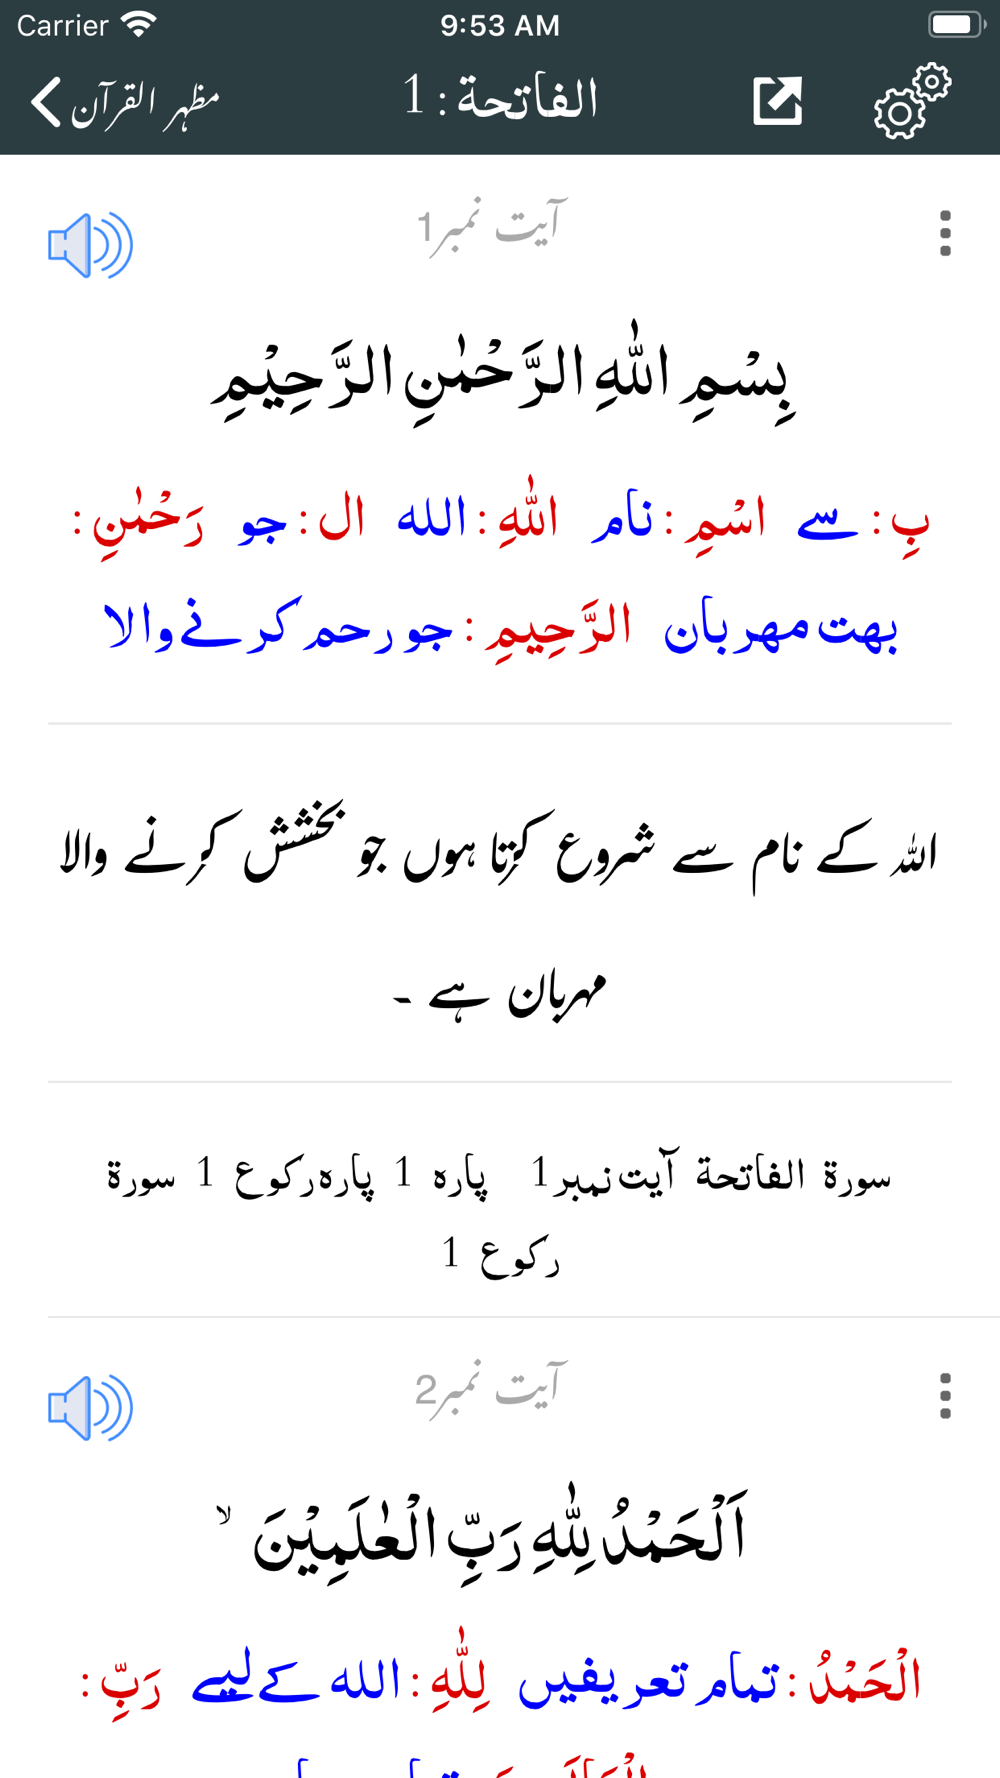 Carrier 9:53 AM
مظہر القرآن الفاتحة : 1
آیت نمبر1
بِسْمِ اللّٰهِ الرَّحْمٰنِ الرَّحِيْمِ
بِ: سے اسْمِ: نام اللّٰهِ: الله ال: جو رَحْمٰنِ:
بهت مهربان الرَّحِيمِ: جو رحم کرنے والا
اللہ کے نام سے شروع کرتا ہوں جو بخشش کرنے والا
مہربان ہے ۔
سورة الفاتحة آیت نمبر 1 پاره 1 پاره رکوع 1 سورة
رکوع 1
آیت نمبر2
اَلْحَمْدُ لِلّٰهِ رَبِّ الْعٰلَمِيْنَ ۙ
الْحَمْدُ: تمام تعریفیں لِلّٰهِ: الله کے لیے رَبِّ: